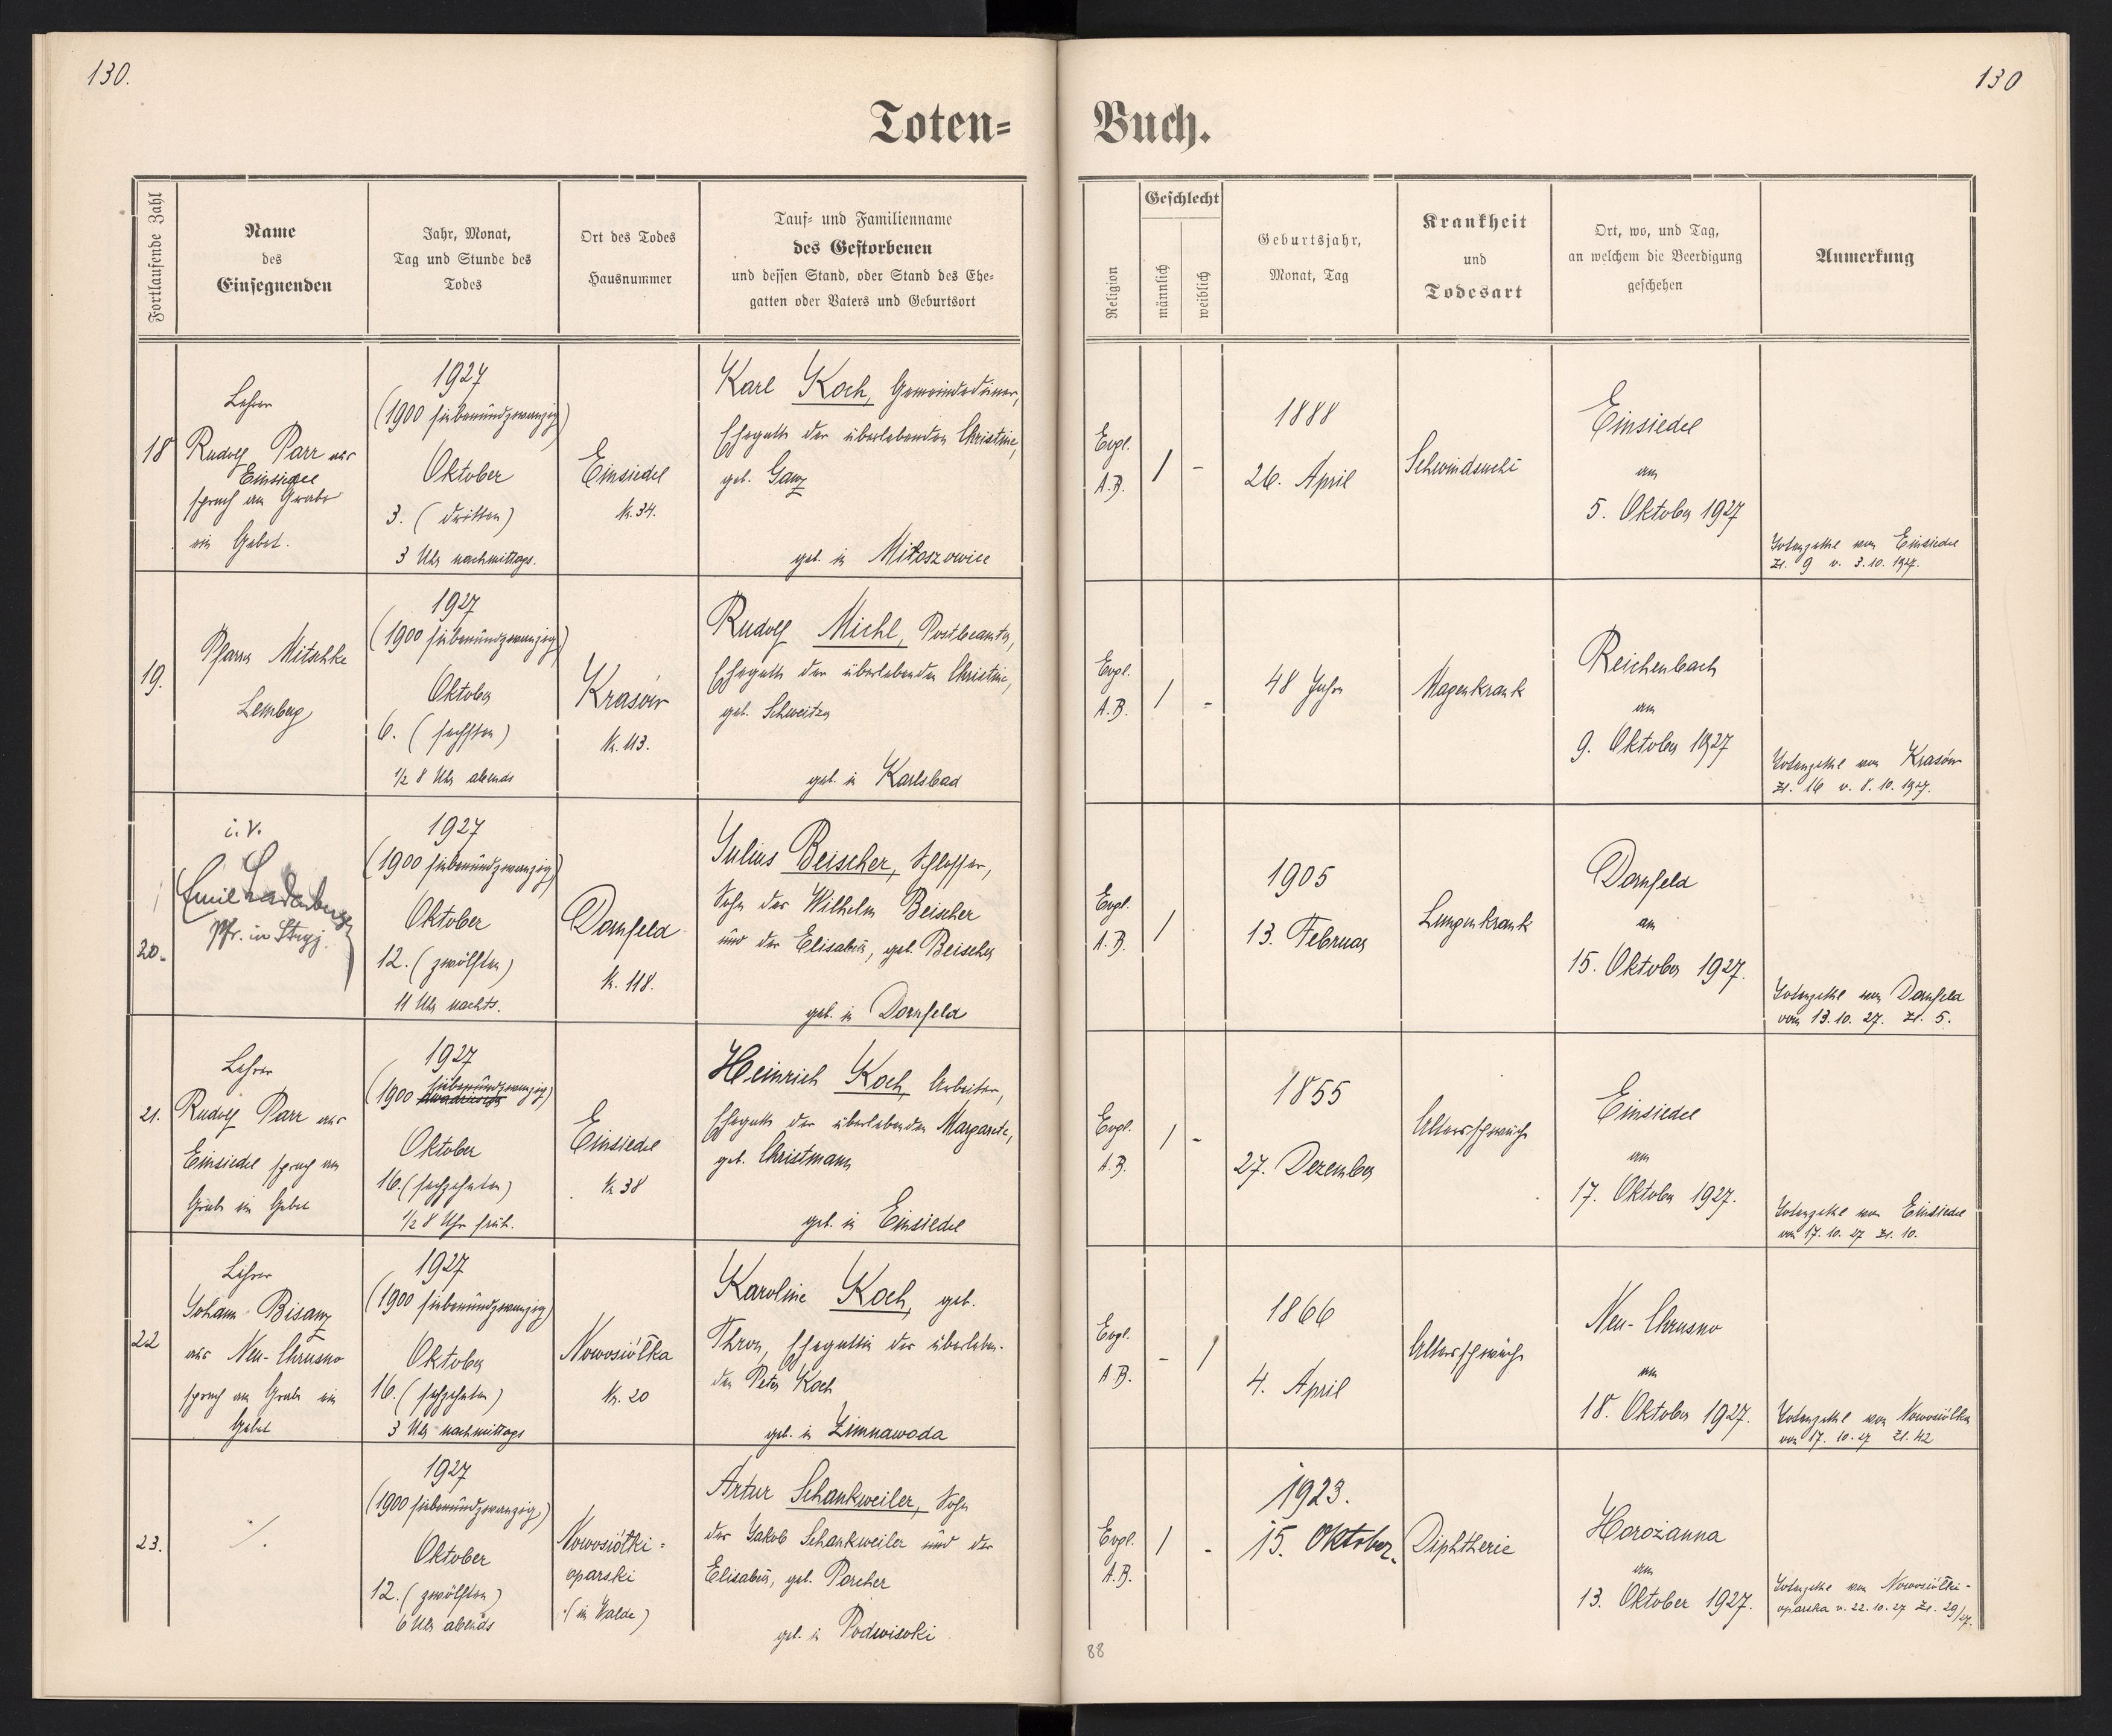 130.
130
Toten=
Buch.
Fortlaufende Zahl
Name
des
Einsegnenden
Jahr, Monat,
Tag und Stunde des
Todes
Ort des Todes
Hausnummer
Tauf= und Familienname
des Gestorbenen
und dessen Stand, oder Stand des Ehe=
gatten oder Vaters und Geburtsort
Religion
Geschlecht
männlich
weiblich
Geburtsjahr,
Monat, Tag
Krankheit
und
Todesart
Ort, wo, und Tag,
an welchem die Beerdigung
geschehen
Anmerkung
18
Lehrer
Rudolf Parr aus
Einsiedel
sprach am Grabe
ein Gebet.
1927
(1900 siebenundzwanzig)
Oktober
3. (dritten)
3 Uhr nachmittags.
Einsiedel
Nr. 34.
Karl Koch, Gemeindediener,
Ehegatte der überlebenden Christine,
geb. Ganz
geb. in Mitoszowice
Evgl.
A.B.
/ -
1888
26. April
Schwindsucht
Einsiedel
am
5. Oktober 1927
Totenzettel von Einsiedel
Zl. 9 v. 3.10.1927.
19.
Pfarrer Mitschke
Lemberg
1927
(1900 siebenundzwanzig)
Oktober
6. (sechsten)
1/2 8 Uhr abends
Krasów
Nr. 113.
Rudolf Michl, Postbeamter,
Ehegatte der überlebenden Christine,
geb. Schweitzer
geb. in Karlsbad
Evgl.
A.B.
/ -
48 Jahre
Magenkrank
Reichenbach
am
9. Oktober 1927
Totenzettel von Krasów
Zl. 16 v. 8.10.1927.
20.
i.V.
Emil Ladenberger
Pfr. in Stryj.
1927
(1900 siebenundzwanzig)
Oktober
12. (zwölften)
11 Uhr nachts.
Dornfeld
Nr. 118.
Julius Beischer, Schlosser,
Sohn des Wilhelm Beischer
und der Elisabeth, geb. Beischer
geb. in Dornfeld
Evgl.
A.B.
/
1905
13. Februar
Lungenkrank
Dornfeld
am
15. Oktober 1927.
Totenzettel von Dornfeld
vom 13.10.27. Zl. 5.
21.
Lehrer
Rudolf Parr aus
Einsiedel sprach am
Grabe ein Gebet
1927
siebenundzwanzig)
(1900
Oktober
16. (sechzehnten)
1/2 8 Uhr früh.
Einsiedel
Nr 38
Heinrich Koch, Arbeiter,
Ehegatte der überlebenden Margarete,
geb. Christmann
geb. in Einsiedel
Evgl.
A.B.
/ -
1855
27. Dezember
Altersschwäche
Einsiedel
am
17. Oktober 1927.
Totenzettel von Einsiedel
vom 17.10.27 Zl. 10.
22
Lehrer
Johann Bisanz
aus Neu-Chrusno
sprach am Grabe ein
Gebet
1927
(1900 siebenundzwanzig)
Oktober
16. (sechzehnten)
3 Uhr nachmittags
Nowosiółka
Nr. 20
Karoline Koch, geb.
Thron, Ehegattin des überleben-
den Peter Koch
geb. in Zimnawoda
Evgl.
A.B.
- /
1866
4. April
Altersschwäche
Neu-Chrusno
am
18. Oktober 1927.
Totenzettel von Nowosiółka
vom 17.10.27 Zl. 42
23.
./.
1927
(1900 siebenundzwanzig)
Oktober
12. (zwölften)
6 Uhr abends
Nowosiółki=
oparski
(im Walde)
Artur Schankweiler, Sohn
des Jakob Schankweiler und der
Elisabeth, geb. Porcher
geb. in Podwisoki
Evgl.
A.B.
/ -
1923.
15. Oktober.
Diphtherie
Horożanna
am
13. Oktober 1927.
Totenzettel von Nowosiółki-
oparska v. 22.10.27 Zl. 29/27.
88